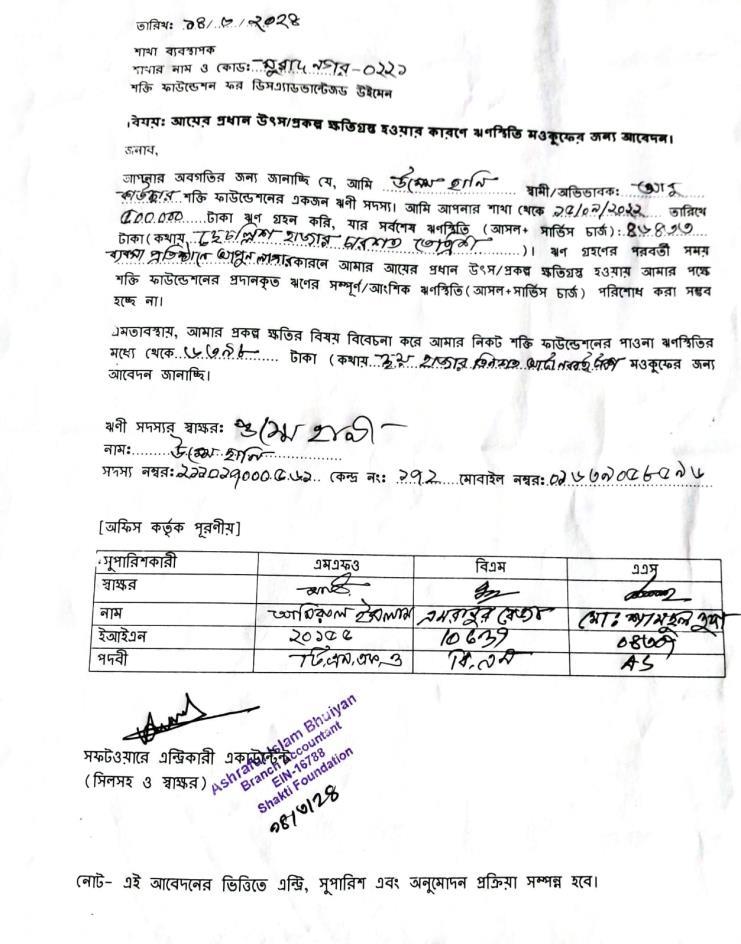 তারিখ: ১৪/৩/২০২৪
শাখা ব্যবস্থাপক
শাখার নাম ও কোড: মুরাদনগর-০২২১
শক্তি ফাউন্ডেশন ফর ডিসএ্যাডভান্টেজড উইমেন
বিষয়: আয়ের প্রধান উৎস/প্রকল্প ক্ষতিগ্রস্থ হওয়ার কারণে ঋণস্থিতি মওকুফের জন্য আবেদন।
জনাব,
আপনার অবগতির জন্য জানাচ্ছি যে, আমি উম্মে হানি স্বামী/অভিভাবক: আবু
কাউছার শক্তি ফাউন্ডেশনের একজন ঋণী সদস্য। আমি আপনার শাখা থেকে তারিখে
টাকা ঋণ গ্রহন করি, যার সর্বশেষ ঋণস্থিতি (আসল+ সার্ভিস চার্জ):
টাকা (কথায় )। ঋণ গ্রহণের পরবর্তী সময়
ব্যবসা প্রতিষ্ঠানে আগুন লাগার কারনে আমার আয়ের প্রধান উৎস/প্রকল্প ক্ষতিগ্রস্থ হওয়ায় আমার পক্ষে
শক্তি ফাউন্ডেশনের প্রদানকৃত ঋণের সম্পূর্ণ/আংশিক ঋণস্থিতি (আসল+সার্ভিস চার্জ) পরিশোধ করা সম্ভব
হচ্ছে না।
এমতাবস্থায়, আমার প্রকল্প ক্ষতির বিষয় বিবেচনা করে আমার নিকট শক্তি ফাউন্ডেশনের পাওনা ঋণস্থিতির
মধ্যে থেকে ৬৩৯৮ টাকা (কথায় ছয় হাজার তিনশত আটানব্বই টাকা মওকুফের জন্য
আবেদন জানাচ্ছি।
ঋণী সদস্যর স্বাক্ষর: উম্মে হানী
নাম: উম্মে হানি
সদস্য নম্বর: কেন্দ্র নং: মোবাইল নম্বর:
[অফিস কর্তৃক পূরণীয়]
সুপারিশকারী এমএফও বিএম এএস
স্বাক্ষর
নাম আমিরুল ইসলাম
ইআইএন ২০১৫৫
পদবী বি,এম AS
সফটওয়ারে এন্ট্রিকারী একাউন্টেন্ট
(সিলসহ ও স্বাক্ষর)
Ashraful Islam Bhuiyan
Branch Accountant
EIN-16788
Shakti Foundation
১৪/৩/২৪
নোট- এই আবেদনের ভিত্তিতে এন্ট্রি, সুপারিশ এবং অনুমোদন প্রক্রিয়া সম্পন্ন হবে।